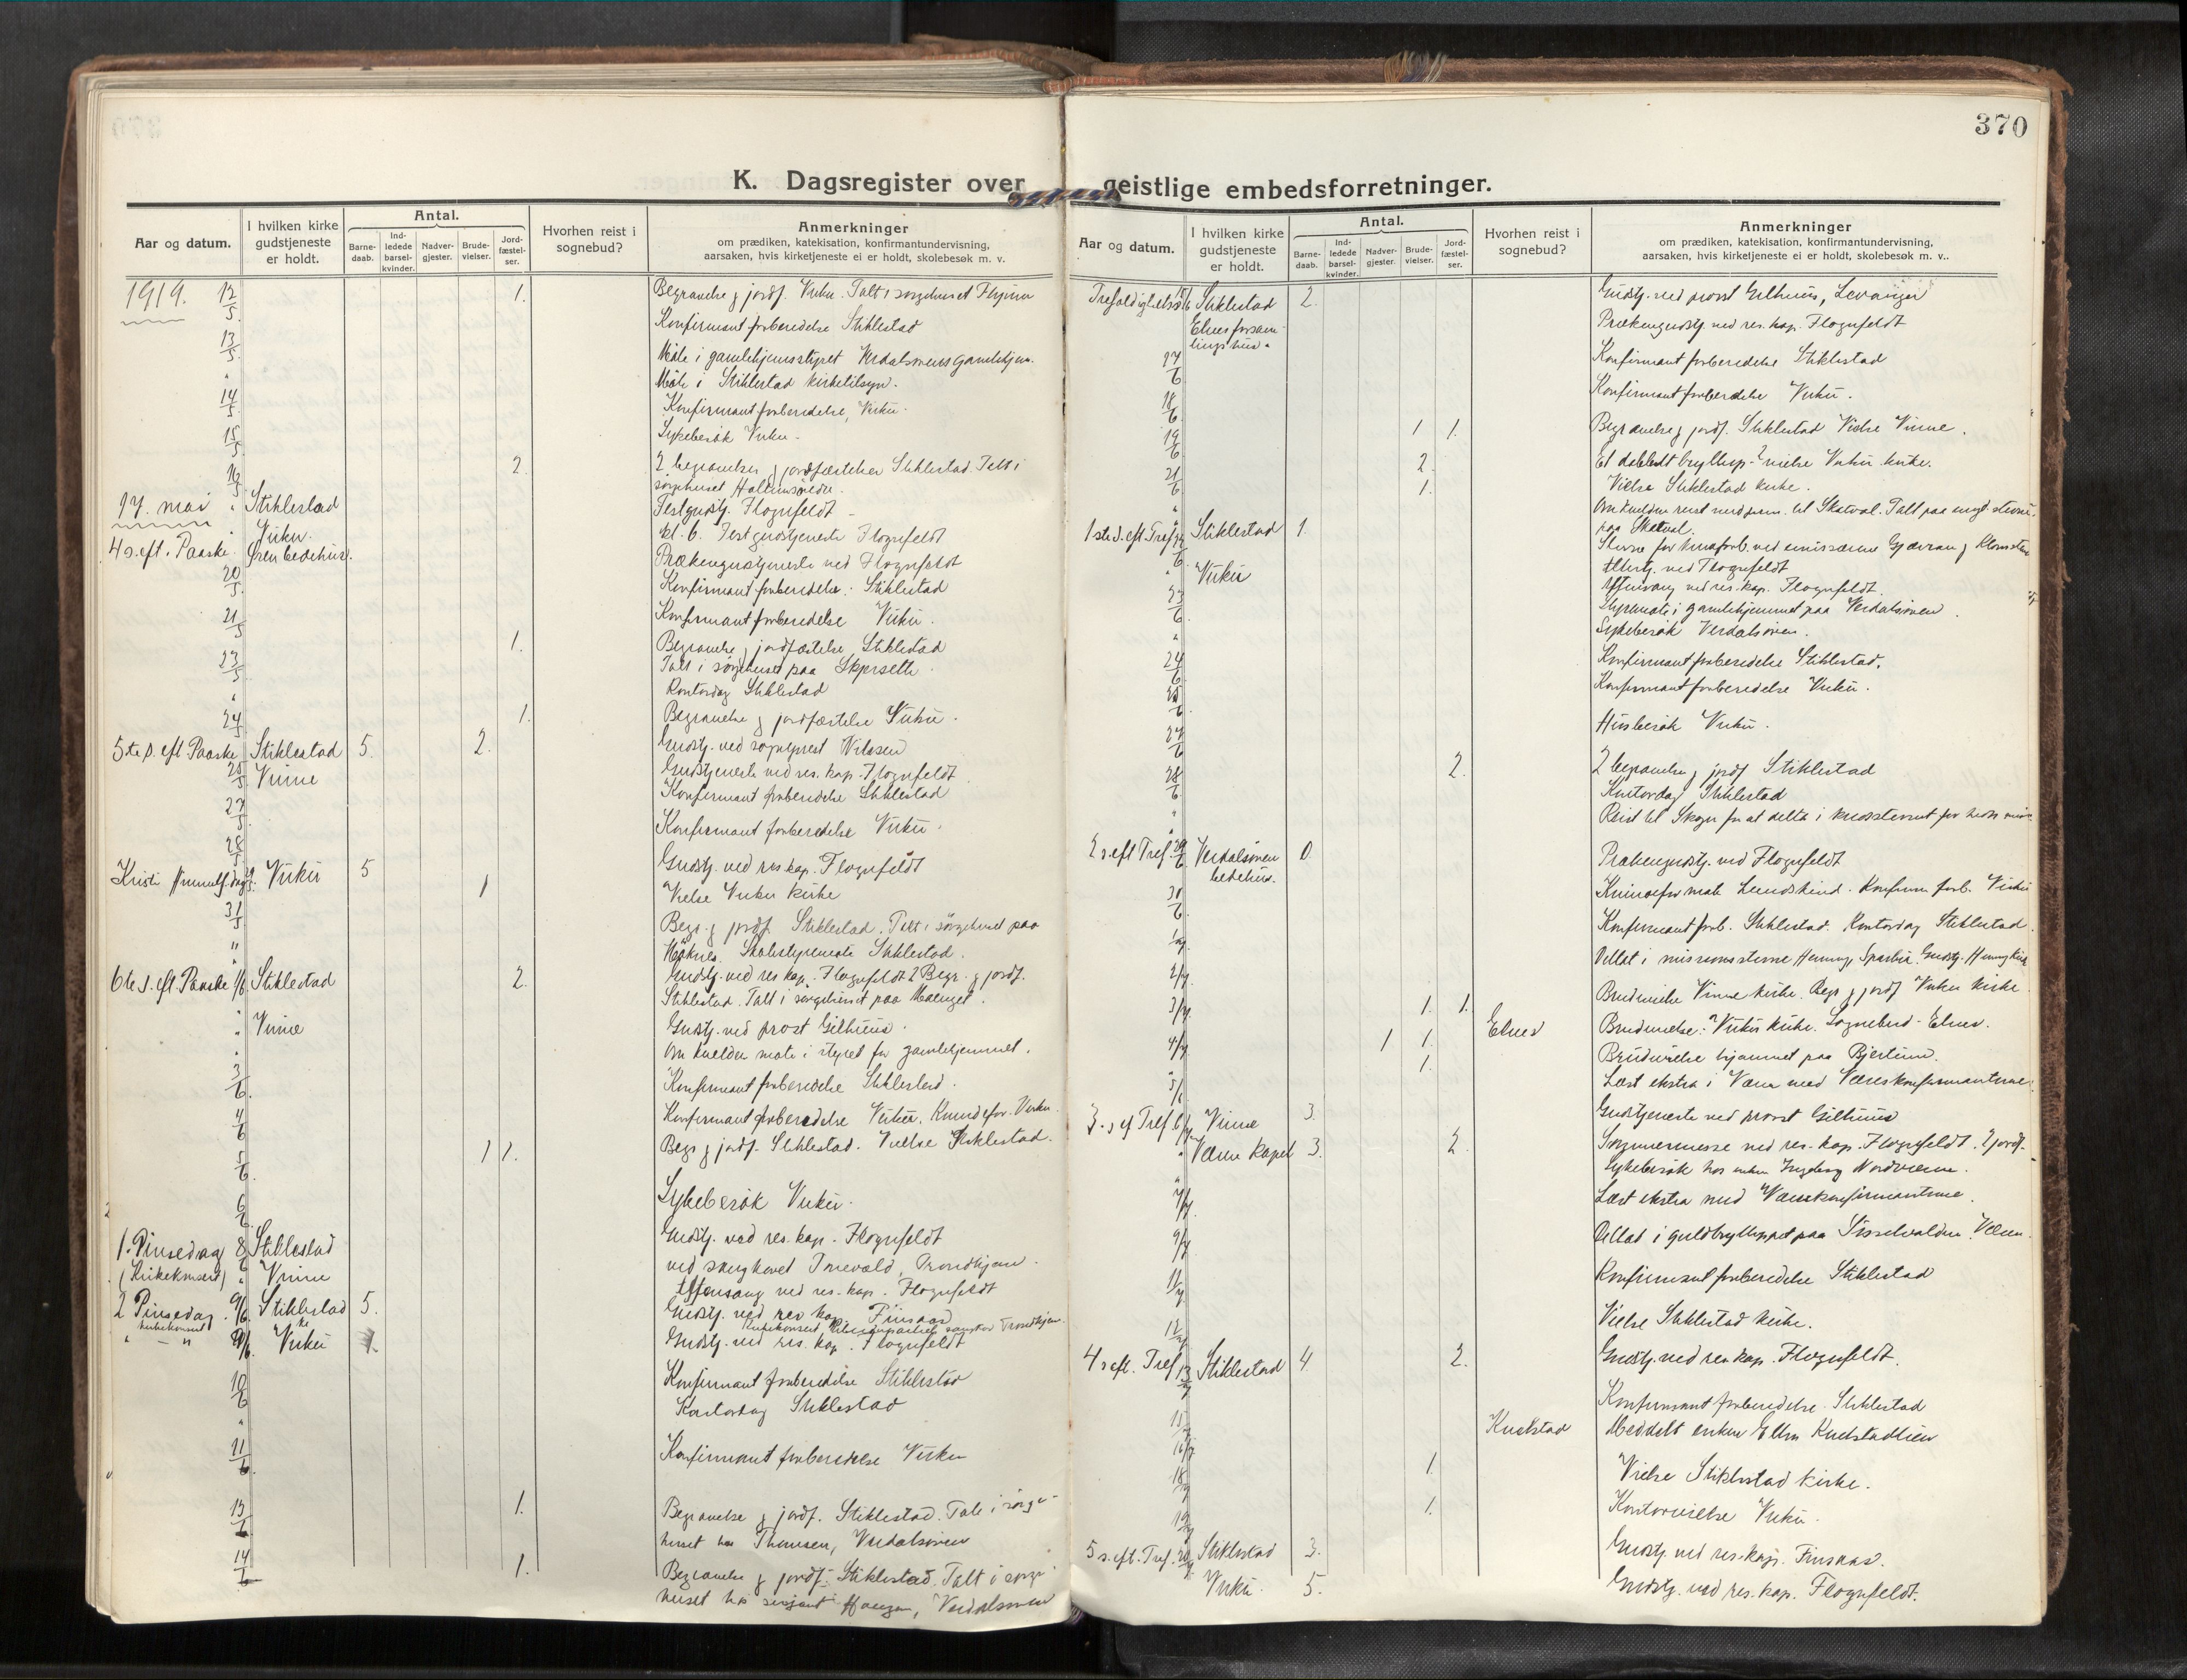 370
K. Dagsregister over geistlige embedsforretninger.
Aar og datum.
I hvilken kirke gudstjeneste er holdt.
Antal.
Barne-daab.
Ind-ledede barsel-kvinder.
Nadver-gjester.
Brude-vielser.
Jord-fæstel-ser.
Hvorhen reist i sognebud?
Anmerkninger
om prædiken, katekisation, konfirmantundervisning,
aarsaken, hvis kirketjeneste ei er holdt, skolebesøk m. v.
1919. 12/5 1. Begravelse & jordf. Vuku. Talt i sørgehuset
13/5 Konfirmantforberedelse Stiklestad
" Møte i gamlehjemsstyret Verdalsørens gamlehjem.
Møte i Stiklestad kirketilsyn.
14/5 Konfirmantforberedelse, Vuku.
15/5 Sykebesøk Vuku.
16/5 2. 2 begravelser & jordfæstelser Stiklestad. Talt i
sørgehuset
17. mai " Stiklestad Festgudstj. Flognfeldt
" Vuku. kl. 6. Festgudstjeneste Flognfeldt
4 s. eft. Paaske. Øren bedehus. Prækengudstjeneste ved Flognfeldt
20/5 Konfirmantforberedelse. Stiklestad
21/5 Konfirmantforberedelse Vuku.
23/5 1. Begravelse & jordfæstelse Stiklestad
Talt i sørgehuset paa
" Kontordag Stiklestad
24/5 1. Begravelse & jordfæstelse Vuku.
5te s. eft Paaske 25/5 Stiklestad 5. 2. Gudstj. ved sogneprest Nilssen
Vinne Gudstjeneste ved res. kap. Flognfeldt
27/5 Konfirmantforberedelse Stiklestad
28/5 Konfirmantforberedelse Vuku.
Kristi Himmelf. dag 29/5. Vuku 5 Gudstj. ved res. kap. Flognfeldt
31/5 1 Vielse Vuku kirke
" Begr. & jordf. Stiklestad. Talt i sørgehuset paa
Skolestyremøte Stiklestad.
6te s. eft. Paaske 1/6 Stiklestad 2. Gudstj. ved res. kap. Flognfeldt 2 Begr. & jordf.
Stiklestad. Talt i sørgehuset paa
" Vinne Gudstj. ved prost Gilhuus.
" Om kvelden møte i styret for gamlehjemmet.
3/6 Konfirmantforberedelse Stiklestad.
4/6 Konfirmantforberedelse Vuku. Kvindefor. Vuku.
5/6 1 1. Begr. & jordf. Stiklestad. Vielse Stiklestad.
6/6 Sykebesøk Vuku.
1. Pinsedag 8/6 Stiklestad Gudstj. ved res. kap. Flognfeldt
(Kirkekonsert) " Vinne ved sangkoret Trondhjem.
Aftensang ved res. kap. Flognfeldt
2 Pinsedag. 9/6 Stiklestad 5. Gudstj. ved res kap. Finsaas
kirkekonsert Kirkekonsert Trondhjem.
" — " 9/6. Vuku Gudstj. ved res. kap. Flognfeldt
10/6 Konfirmantforberedelse Stiklestad
" Kontordag Stiklestad
11/6 Konfirmantforberedelse Vuku
13/6 1. Begravelse & jordf. Stiklestad. Talt i sørge-
huset hos Thomsen, Verdalsøren
14/6 1. Begravelse & jordf. Stiklestad. Talt i sørge-
huset hos sersjant Haugan, Verdalsøren
Aar og datum.
I hvilken kirke gudstjeneste er holdt.
Antal.
Barne-daab.
Ind-ledede barsel-kvinder.
Nadver-gjester.
Brude-vielser.
Jord-fæstel-ser.
Hvorhen reist i sognebud?
Anmerkninger
om prædiken, katekisation, konfirmantundervisning,
aarsaken, hvis kirketjeneste ei er holdt, skolebesøk m. v..
Trefoldighetss. 15/6 Stiklestad 2. Gudstj. ved prost Gilhuus, Levanger
Elnes forsam-
lingshus. Prækengudstj. ved res. kap. Flognfeldt
17/6 Konfirmantforberedelse Stiklestad
18/6 Konfirmantforberedelse Vuku.
19/6 1 1. Begravelse & jordf. Stiklestad Vielse Vinne.
21/6 2. Et dobbelt bryllup - 2 vielse Vuku kirke.
" 1. Vielse Stiklestad kirke.
Om kvelden reist til Skatval. Talt paa
paa Skatval.
1ste s. eft. Tref. 22/6 Stiklestad 1. Stevne for
Altertg. ved Flognfeldt
" Vuku Aftensang ved res. kap. Flognfeldt.
23/6 Styremøte i gamlehjemmet paa Verdalsøren.
" Sykebesøk Verdalsøren.
24/6 Konfirmantforberedelse Stiklestad.
25/6 Konfirmantforberedelse Vuku.
27/6 Husbesøk Vuku.
28/6 2. 2 begravelse & jordf Stiklestad
Kontordag Stiklestad
" Reist til Skogn for at delta i
2 s. eft Tref. 29/6 Verdalsøren bedehus. 0. Prækengudstj. ved Flognfeldt
30/6 Kvindefor møte Konfirm. forb. Vuku
1/7 Konfirmantforb. Stiklestad. Kontordag Stiklestad.
2/7 Deltat i missionsstevne Henning, Sparbu. Gudstj. Henning kirke
3/7 1. 1. Brudevielse Vinne kirke. Begr & jordf Vuku kirke
4/7 1 1. Elnes Brudevielse. Vuku kirke. Sognebud - Elnes.
1. Brudevielse hjemmet paa
5/7 Læst ekstra i Væra med Væreskonfirmanterne.
3. s. ef Tref. 6/7 Vinne 3. Gudstjeneste ved prost Gilhuus
" Væra Kapel 3. 2. Sommermesse ved res. kap. Flognfeldt. 2 jordf.
" Sykebesøk hos enken Ingeborg
7/7 Læst ekstra med Væreskonfirmanterne.
9/7 Deltat i guldbryllupet paa
11/7 Konfirmantforberedelse Stiklestad
12/7 Vielse Stiklestad kirke.
4 s eft. Tref 13/7 Stiklestad 4 2. Gudstj. ved res kap. Flognfeldt.
15/7 Konfirmantforberedelse. Stiklestad
16/7 Meddelt enken
18/7 1. Vielse Stiklestad kirke.
19/7 1. Kontorvielse Vuku.
5 s. eft. Tref. 20/7 Stiklestad 3. Gudstj. ved res. kap. Finsaas.
" Vuku. 5. Gudstj. ved res. kap. Flognfeldt.